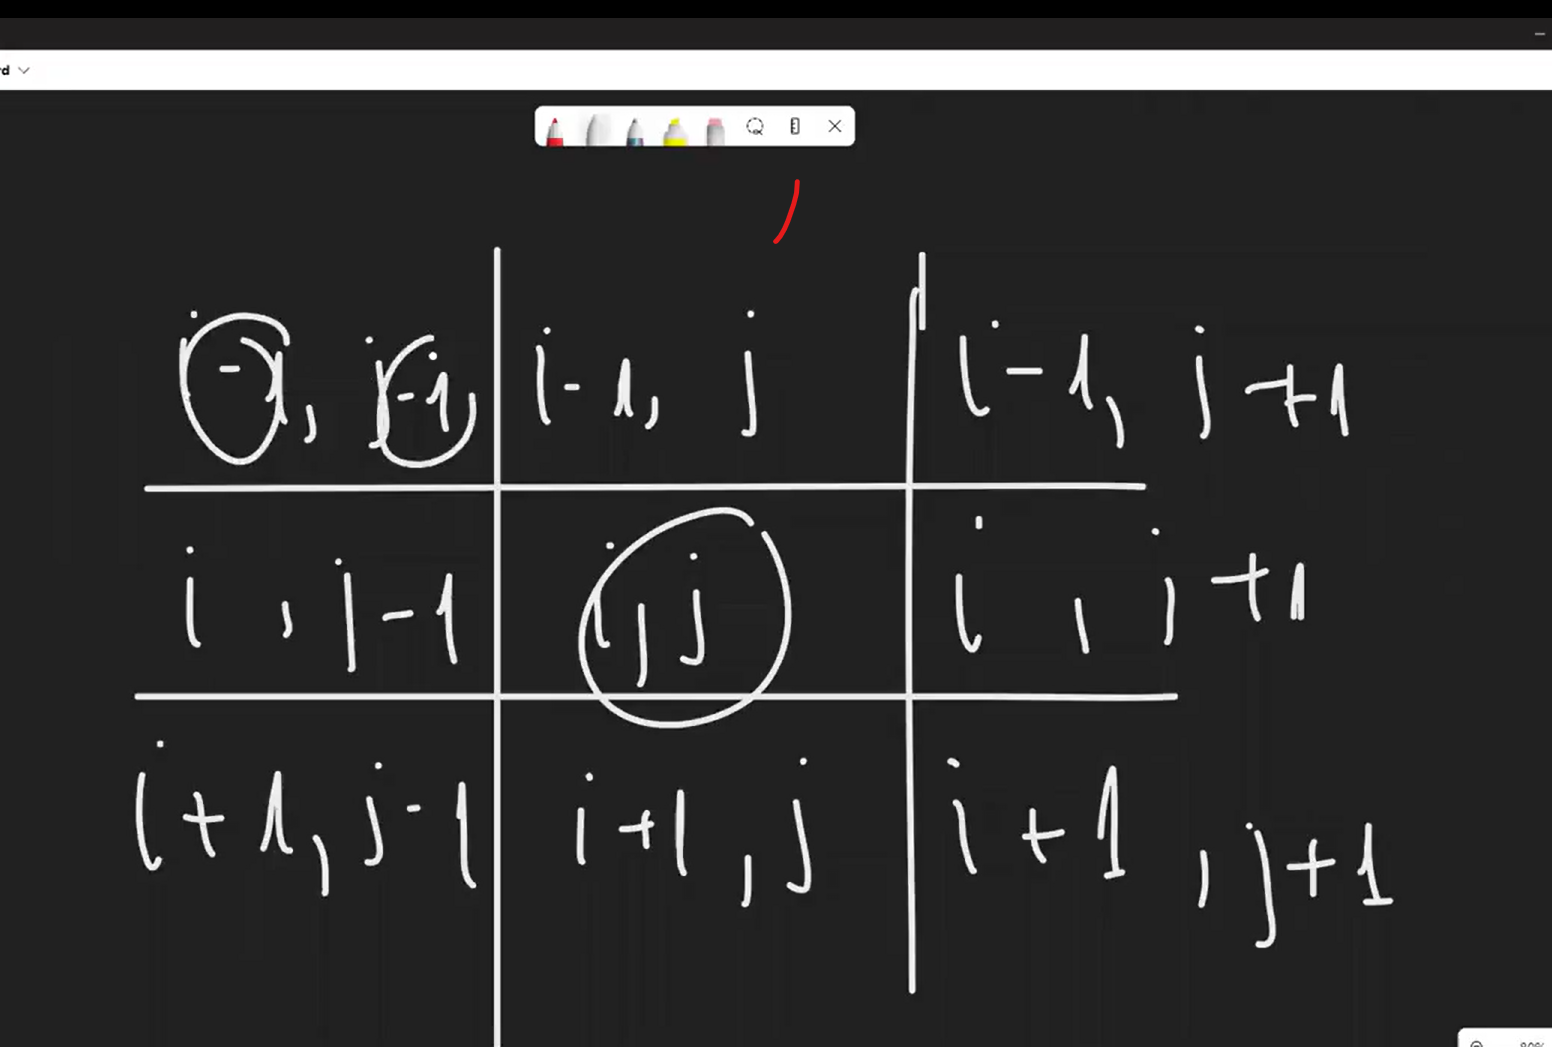 rd
i-1, j-1, i-1, j i-1, j+1
i , j-1 i,j i , j+1
i+1, j-1 i+1, j i+1 , j+1